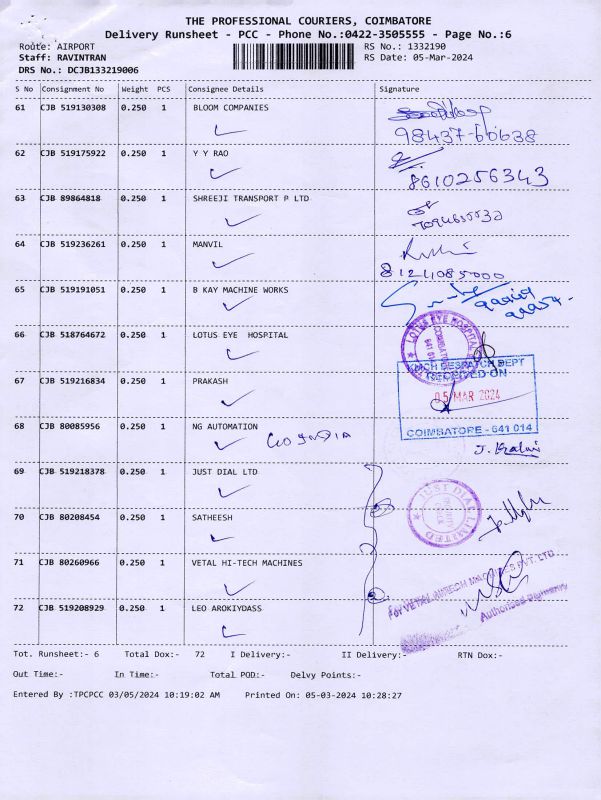 THE PROFESSIONAL COURIERS, COIMBATORE
Delivery Runsheet - PCC - Phone No.:0422-3505555 - Page No.:6
Route: AIRPORT RS No.: 1332190
Staff: RAVINTRAN RS Date: 05-Mar-2024
DRS No.: DCJB133219006
S No Consignment No Weight PCS Consignee Details Signature
61 CJB 519130308 0.250 1 BLOOM COMPANIES
98437-60638
62 CJB 519175922 0.250 1 Y Y RAO
8610256343
63 CJB 89864818 0.250 1 SHREEJI TRANSPORT P LTD
64 CJB 519236261 0.250 1 MANVIL
8124085000
65 CJB 519191051 0.250 1 B KAY MACHINE WORKS
66 CJB 518764672 0.250 1 LOTUS EYE HOSPITAL
LOTUS EYE HOSPITAL
KMCH DESPATCH DEPT
RECEIVED ON
67 CJB 519216834 0.250 1 PRAKASH
05 MAR 2024
68 CJB 80085956 0.250 1 NG AUTOMATION
COIMBATORE - 641 014
69 CJB 519218378 0.250 1 JUST DIAL LTD
JUST DIAL LIMITED
70 CJB 80208454 0.250 1 SATHEESH
71 CJB 80260966 0.250 1 VETAL HI-TECH MACHINES
For VETAL HITECH MACHINES PVT. LTD
Authorised Signatory
72 CJB 519208929 0.250 1 LEO AROKIYDASS
Tot. Runsheet:- 6 Total Dox:- 72 I Delivery:- II Delivery:- RTN Dox:-
Out Time:- In Time:- Total POD:- Delvy Points:-
Entered By :TPCPCC 03/05/2024 10:19:02 AM Printed On: 05-03-2024 10:28:27